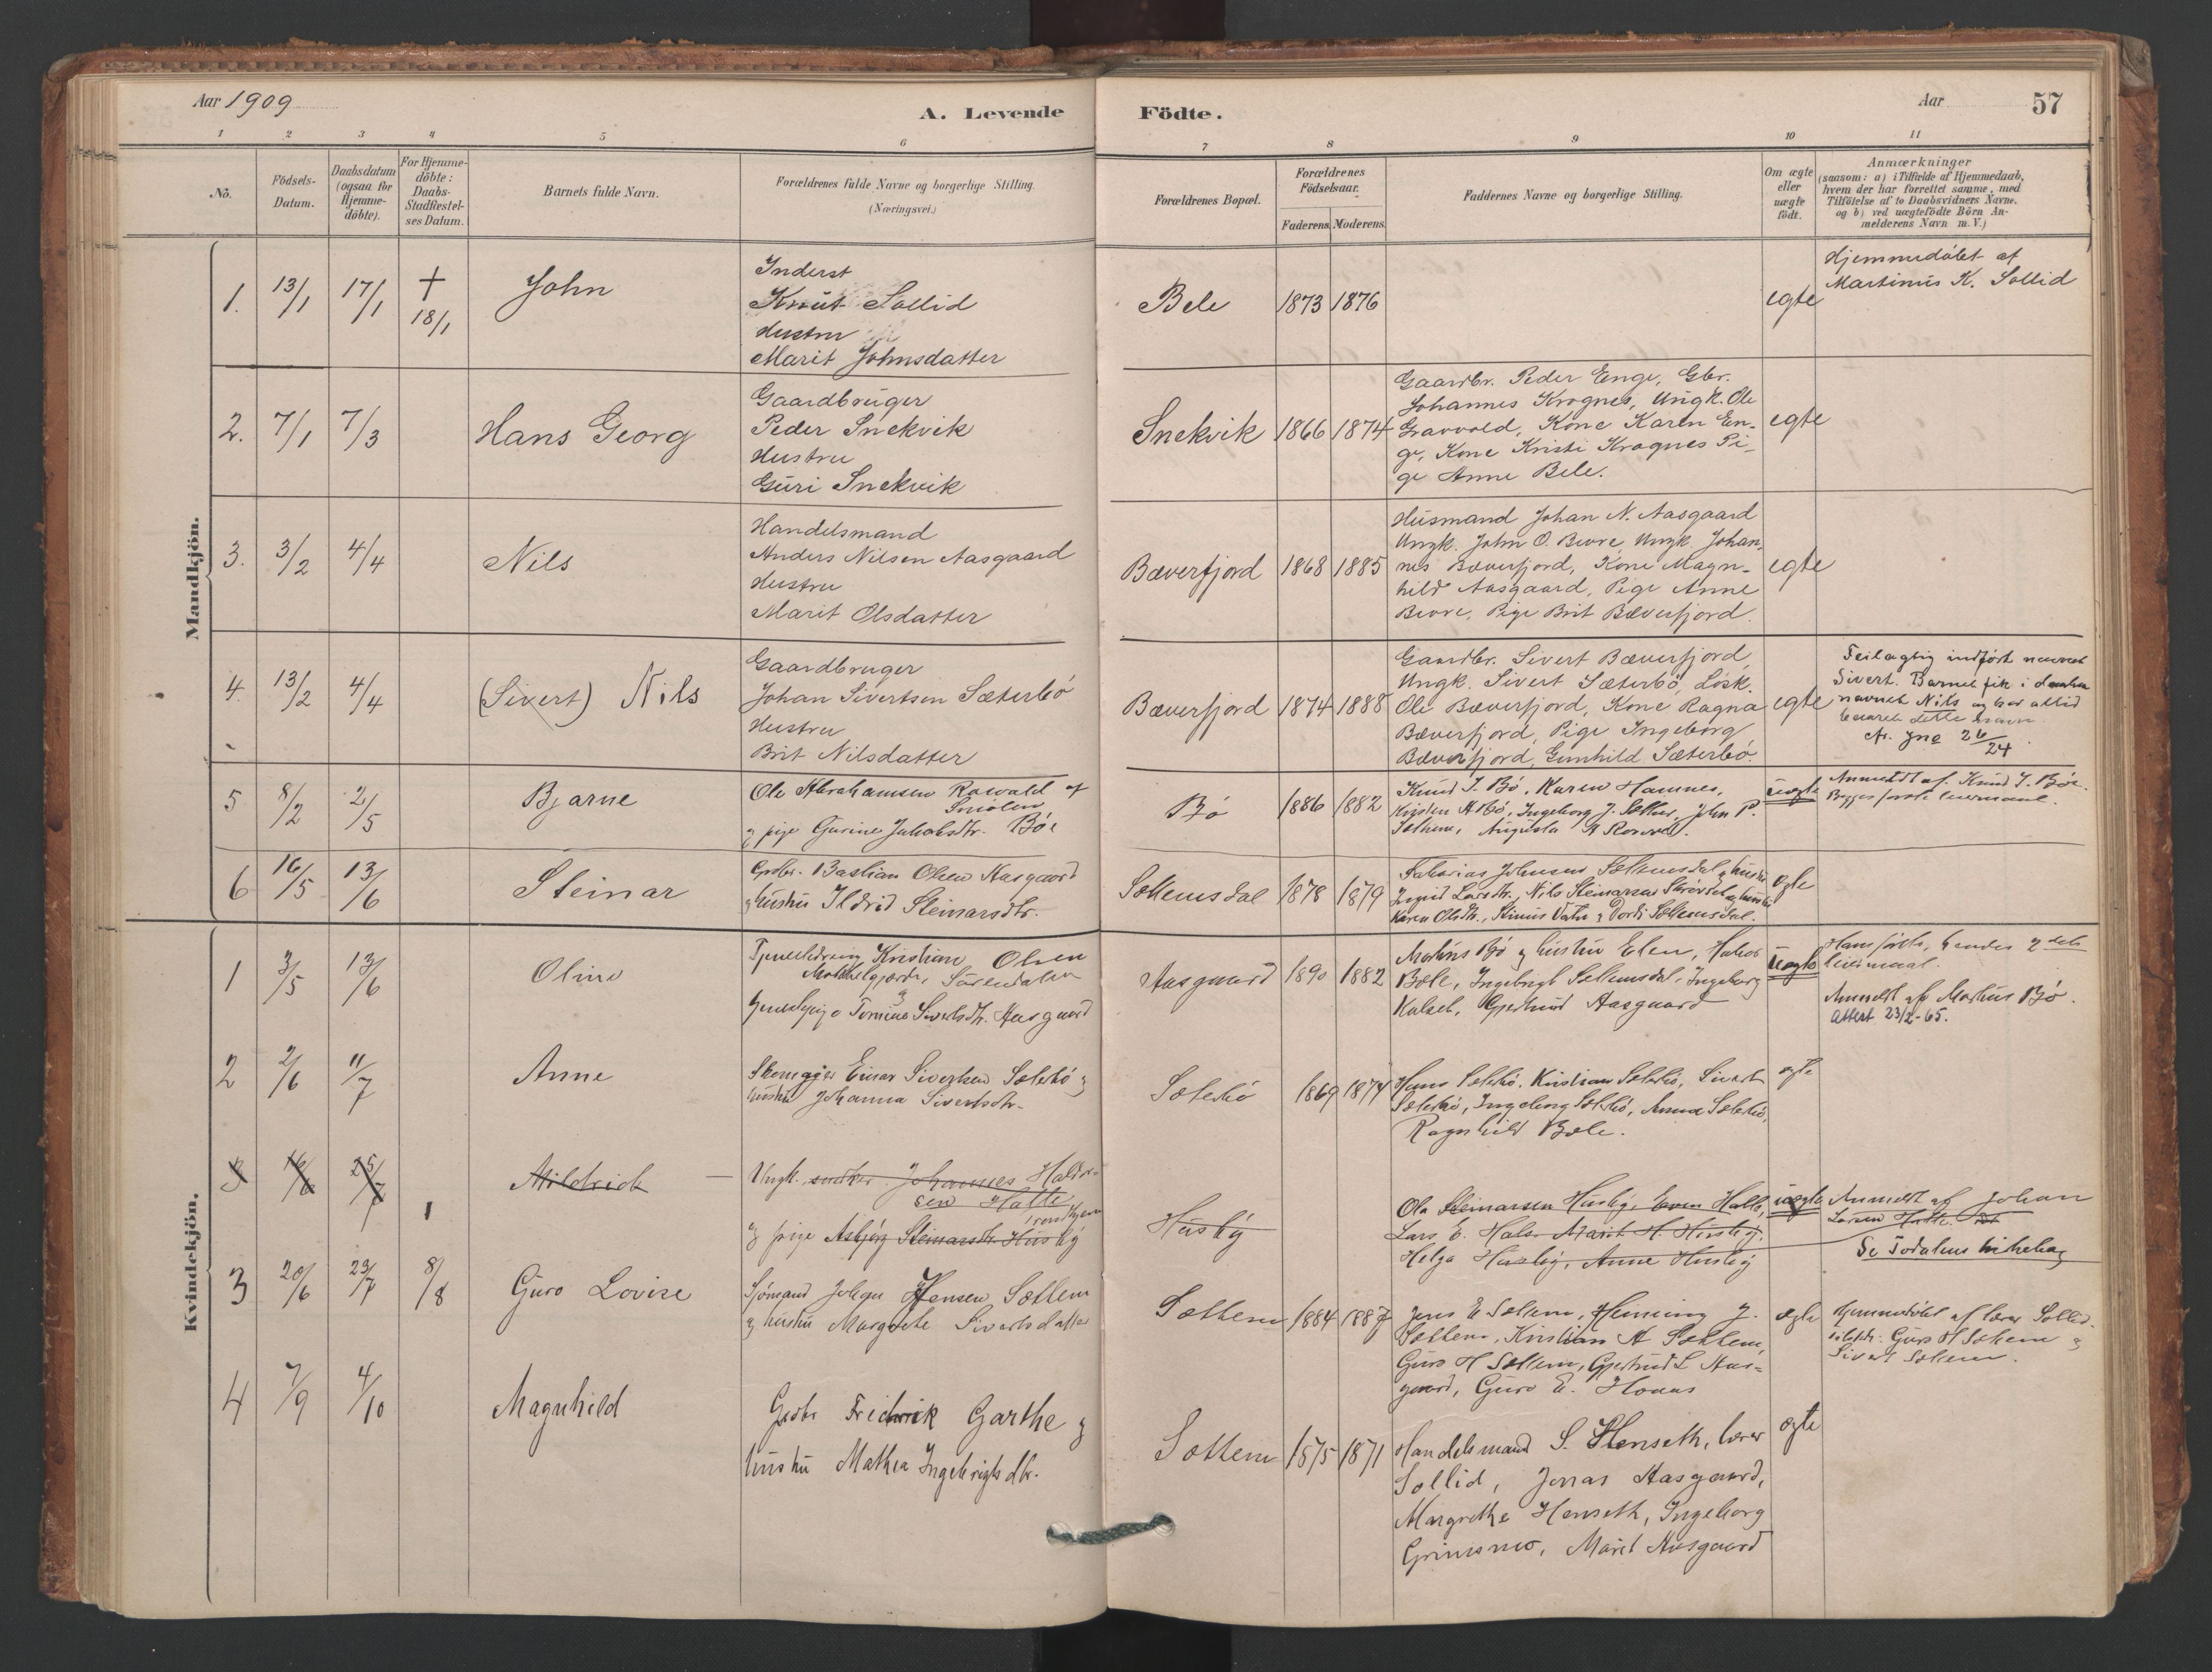 Aar 1909
A. Levende
Födte.
Aar
57
1 2 3 4 5 6 7 8 9 10 11
No.
Födsels-
Datum.
Daabsdatum
(ogsaa for
Hjemme-
döbte).
For Hjemme-
döbte:
Daabs-
Stadfæstel-
ses Datum.
Barnets fulde Navn.
Forældrenes fulde Navne og borgerlige Stilling.
(Næringsvei.)
Forældrenes Bopæl.
Forældrenes
Födselsaar.
Faderens. Moderens.
Faddernes Navne og borgerlige Stilling.
Om ægte
eller
uægte
födt.
Anmærkninger
(saasom: a) i Tilfælde af Hjemmedaab,
hvem der har forrettet samme, med
Tilföielse af to Daabsvidners Navne,
og b) ved uægtefödte Börn An-
melderens Navn m. V.)
Mandkjön.
1. 13/1 17/1 † 18/1 John
Inderst
Knut Sollid
Hustru
Marit Johnsdatter
Bele 1873 1876
egte
Hjemmedöbt af
Martinus K. Sollid
2. 7/1 7/3 Hans Georg
Gaardbruger
Peder Snekvik
Hustru
Guri Snekvik
Snekvik 1866 1874
Gaardbr. Peder Enge, Gbr.
Johannes Krognes, Ungk. Ole
Gravvold, Kone Karen En-
ge, Kone Kristi Krognes Pi-
ge Anne Bele.
egte
3. 3/2 4/4 Nils
Handelsmand
Anders Nilsen Aasgaard
Hustru
Marit Olsdatter
Bæverfjord 1868 1885
Husmand Johan N. Aasgaard
Ungk. John O. Bævre, Ungk. Johan-
nes Bæverfjord, Kone Magn-
hild Aasgaard, Pige Anne
Bævre, Pige Brit Bæverfjord.
egte
4. 13/2 4/4 (Sivert) Nils
Gaardbruger
Johan Sivertsen Sæterbö
Hustru
Brit Nilsdatter
Bæverfjord 1874 1888
Gaardbr. Sivert Bæverfjord,
Ungk. Sivert Sæterbö, Lösk.
Ole Bæverfjord, Kone Ragna
Bæverfjord, Pige Ingeborg
Bæverfjord, Gunhild Sæterbö.
egte
Feilagtig indført navnet
Sivert. Barnet fik i daaben
navnet Nils og har altid
baaret dette navn
26/24
5 8/2 2/5 Bjarne
Ole Abrahamsen Rosvold af
Smölen
og pige Gurine Jakobsdtr. Böe
Bö 1886 1882
Knud J. Bö, Karen Hamnes,
Kirsten A Bö, Ingeborg J. Settem, John P.
Settem, Augusta A Rosvold.
uegte
Anmeldt af Knud J. Böe.
Begges første leiermaal.
6 16/5 13/6 Steinar
Grdbr. Bastian Olsen Aasgaard
og hustru Ildrid Steinarsdtr.
Settemsdal 1878 1879
Sakarias Johnsen Settemsdal og hustru
Ingrid Larsdtr., Nils Steinarsen og hustru
Karen Olsdtr., og Dordi Settemsdal.
egte
Kvindekjön.
1 3/5 13/6 Oline
Kristian Olsen
Surendalen
og
Sivertsdtr. Aasgaard
Aasgaard 1890 1882
Martinus Bö og hustru Elen, Hakon
Bele, Ingebrigt Settemsdal, Ingeborg
Kalset, Gjertrud Aasgaard
uegte
Hans første, hendes 2det
leiermaal.
Anmeldt af Martinus Bö.
Attest 23/2-65.
2 2/6 11/7 Anne
Skomager Einar Sivertsen Sæterbö og
hustru Johanna Sivertsdtr.
Sæterbö 1869 1874
Hans Sæterbö, Kristian Sæterbö, Sivert
Sæterbö, Ingeborg Sæterbö, Anna Sæterbö,
Ragnhild Bele.
egte
3 16/6 25/7 Mildrid
Ungk. snedker Johannes Haldor-
sen Halle
og pige Asbjørg Steinarsdtr. Husby
Husby
Ola Steinarsen Husby, Even Halle,
Lars E. Halse Marit H. Husby,
Helga Husby, Anne Husby
uegte
Anmeldt af Johan
Larsen Halle.
Se Todalens kirkebog
3 20/6 23/7 8/8 Guro Lovise
Sjömand Johan Hensen Settem
og hustru Margrete Sivertsdatter
Settem 1884 1887
Jens E Settem, Henning J.
Settem, Kristian A Settem,
Guro H Settem, Gjertrud L Aas-
gaard, Guro E. Honas
egte
Hjemmedöbt af lærer Sollid.
Guro H Settem og
Sivert Settem.
4 7/9 4/10 Magnhild
Grdbr Fredrik Garthe og
hustru Mathea Ingebrigtsdtr.
Settem 1875 1871
Handelsmand S. Henseth, lærer
Sollid, Jonas Aasgaard,
Margrethe Henseth, Ingeborg
Grimsmo, Marit Aasgaard
egte